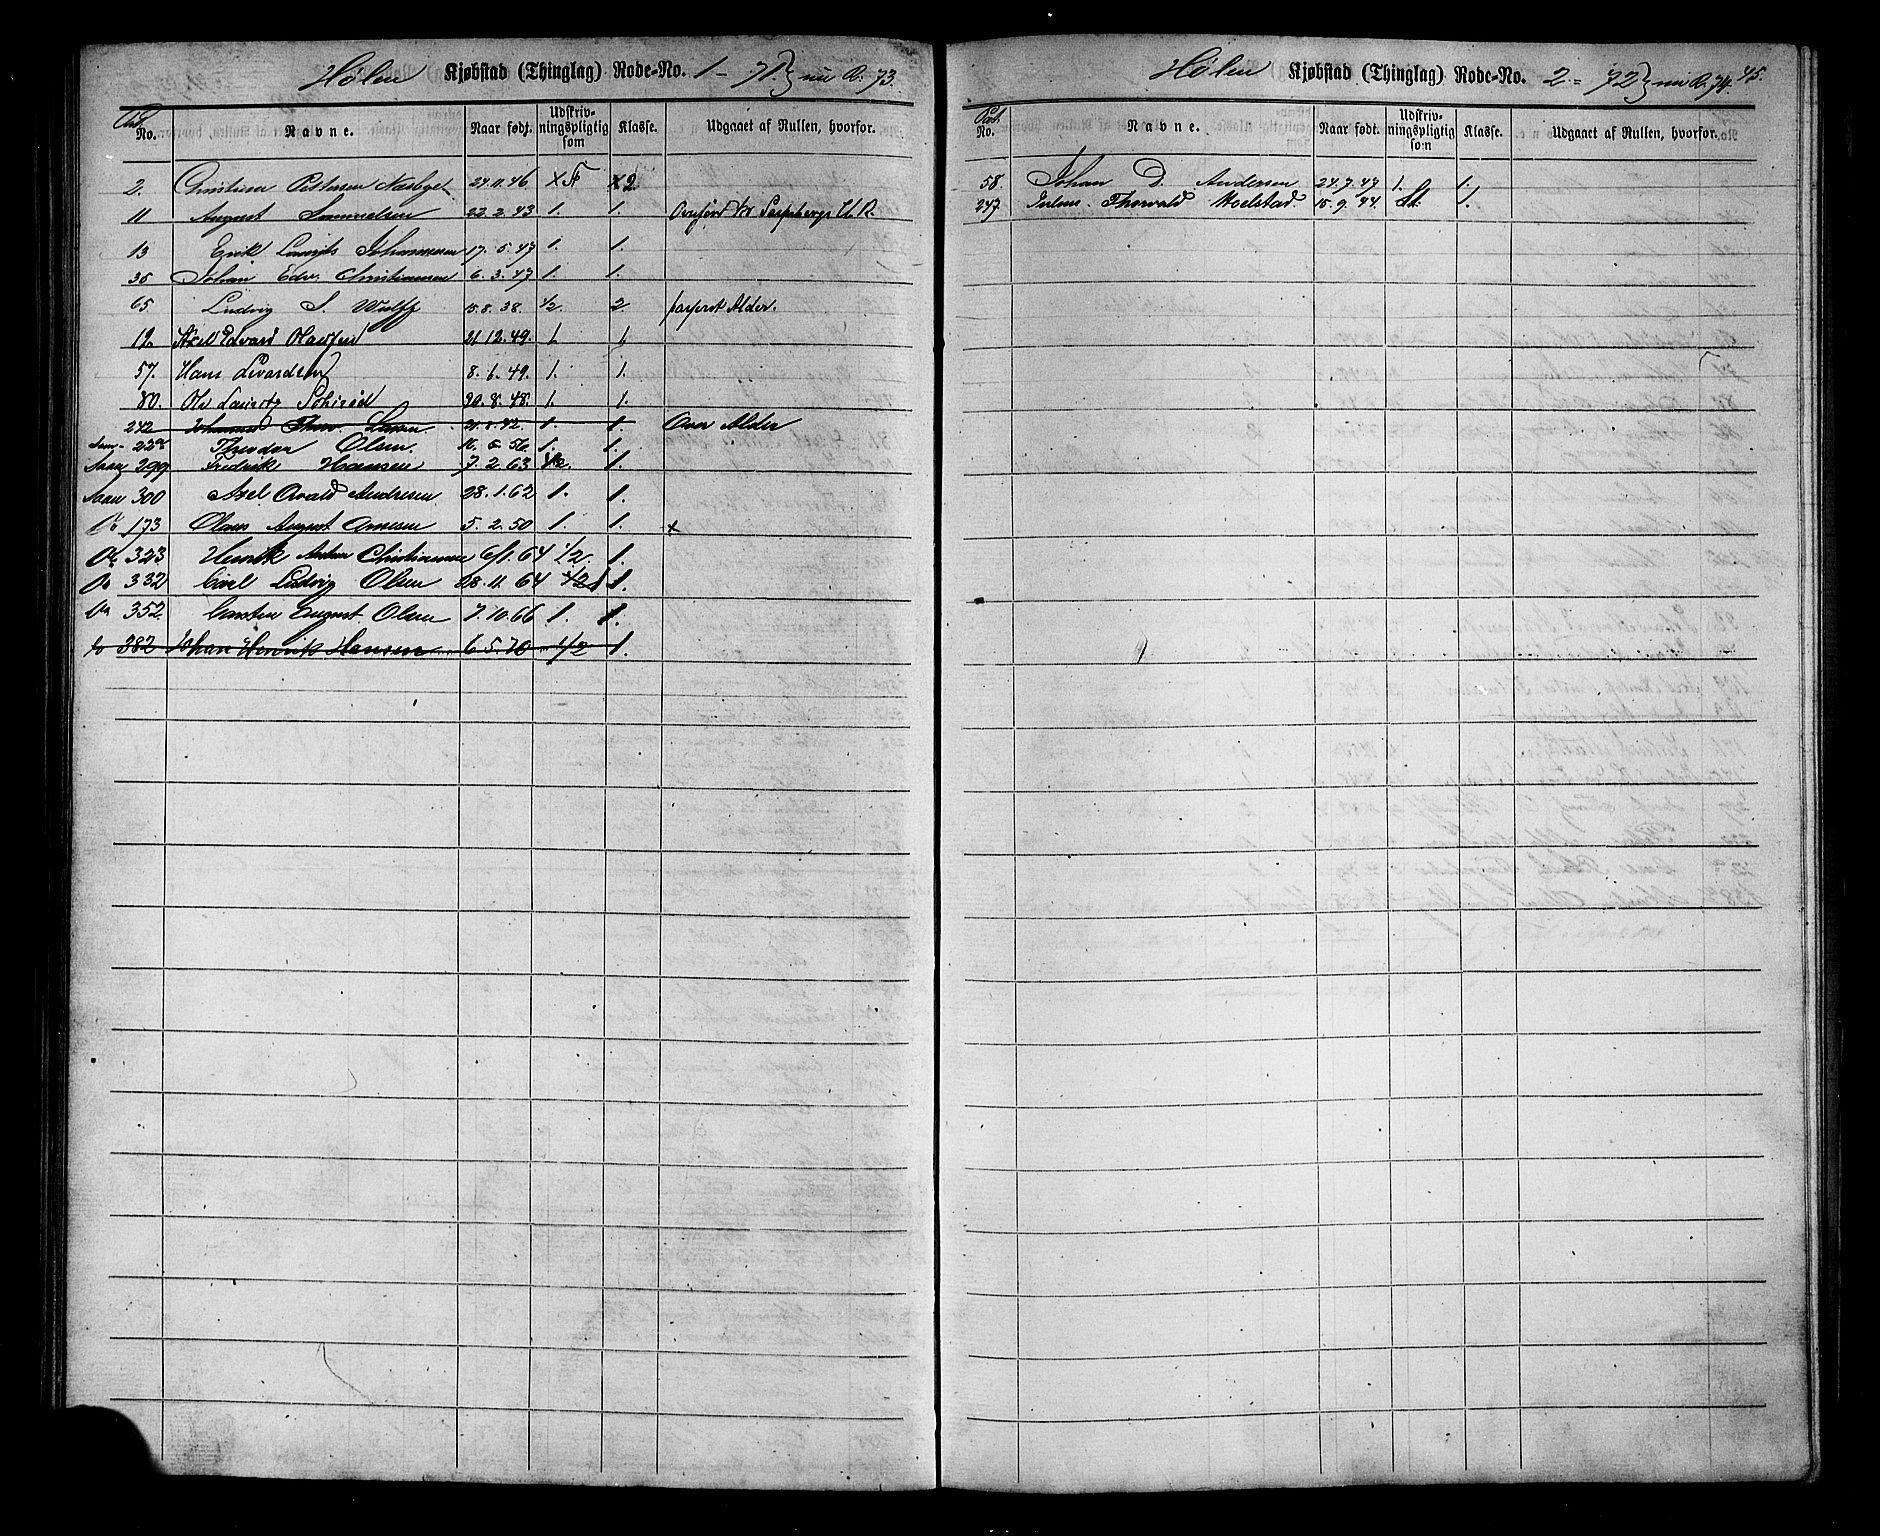 Hølen Kjøbstad (Thinglag) Rode-No. 1 - 71 } nu R. 73.
Pat. No. Navne. Naar født. Udskrivningspligtig som Klasse. Udgaaet af Rullen, hvorfor.
2. Christian Pettersen 24.11.46 2
11 August Samuelsen 22.2.43 1. 1. Overført Sarpsborgs U. R.
13 Erik Laurits Johannesen 17.5.47 1. 1.
35 Johan Edv. Christiansen 6.3.47 1. 1.
65 Ludvig S. Wulff 15.8.38 1/2 2. passert Alder.
12 Axel Edvard Olausen 21.12.49. 1. 1.
57. Hans Edvardsen 8.6.49. 1. 1.
80. Ole Lauritz 20.8.48. 1. 1.
242 Johannes Thorv. Larsen 21.8.42. 1. 1. Over Alder
22 Theodor Olsen 56. 1. 1.
299 Fredrik Hansen 7.2.63 1/2. 1.
300 Axel Osvald Andresen 28.1.62 1. 1.
173 Olaus August Arnesen 5.2.50 1. 1. x
323 Henrik Anton Christiansen 6/1.64 1/2. 1.
332 Carl Ludvig Olsen 28.11.64 1/2 1.
352. Carsten August Olsen 7.10.66 1. 1.
382 Johan Henrik Hansen 6.5.70 1/2 1.
Hølen Kjøbstad (Thinglag) Rode-No. 2 = 72 } nu R. 74. 45.
Pat. No. Navne. Naar født. Udskrivningspligtig som Klasse. Udgaaet af Rullen, hvorfor.
58. Johan D. Andersen 24.7.47 1. 1.
247 Julius Thorvald Moelstad. 15.9.44. St. 1.